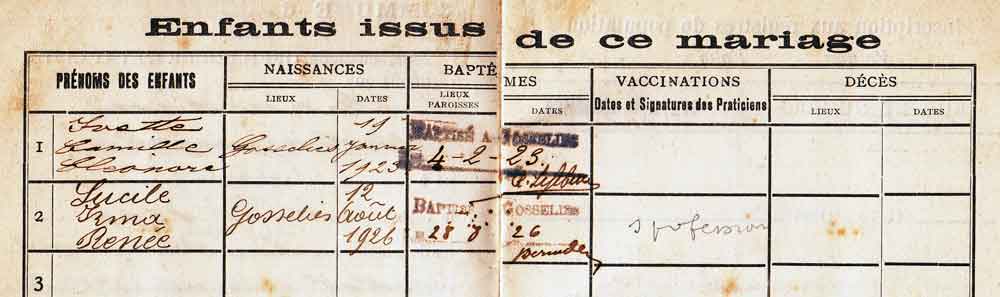 Enfants issus de ce mariage
PRÉNOMS DES ENFANTS
NAISSANCES
BAPTÊMES
VACCINATIONS
DÉCÈS
LIEUX
DATES
LIEUX
PAROISSES
DATES
Dates et Signatures des Praticiens
LIEUX
DATES
1
Ivette
Camille
Eléonore
Gosselies
19
Janvier
1923
BAPTISÉ A GOSSELIES
LE 4-2-23.
2
Lucile
Irma
Renée
Gosselies
12
Août
1926
BAPTISÉ A GOSSELIES
LE 28 8 26
3